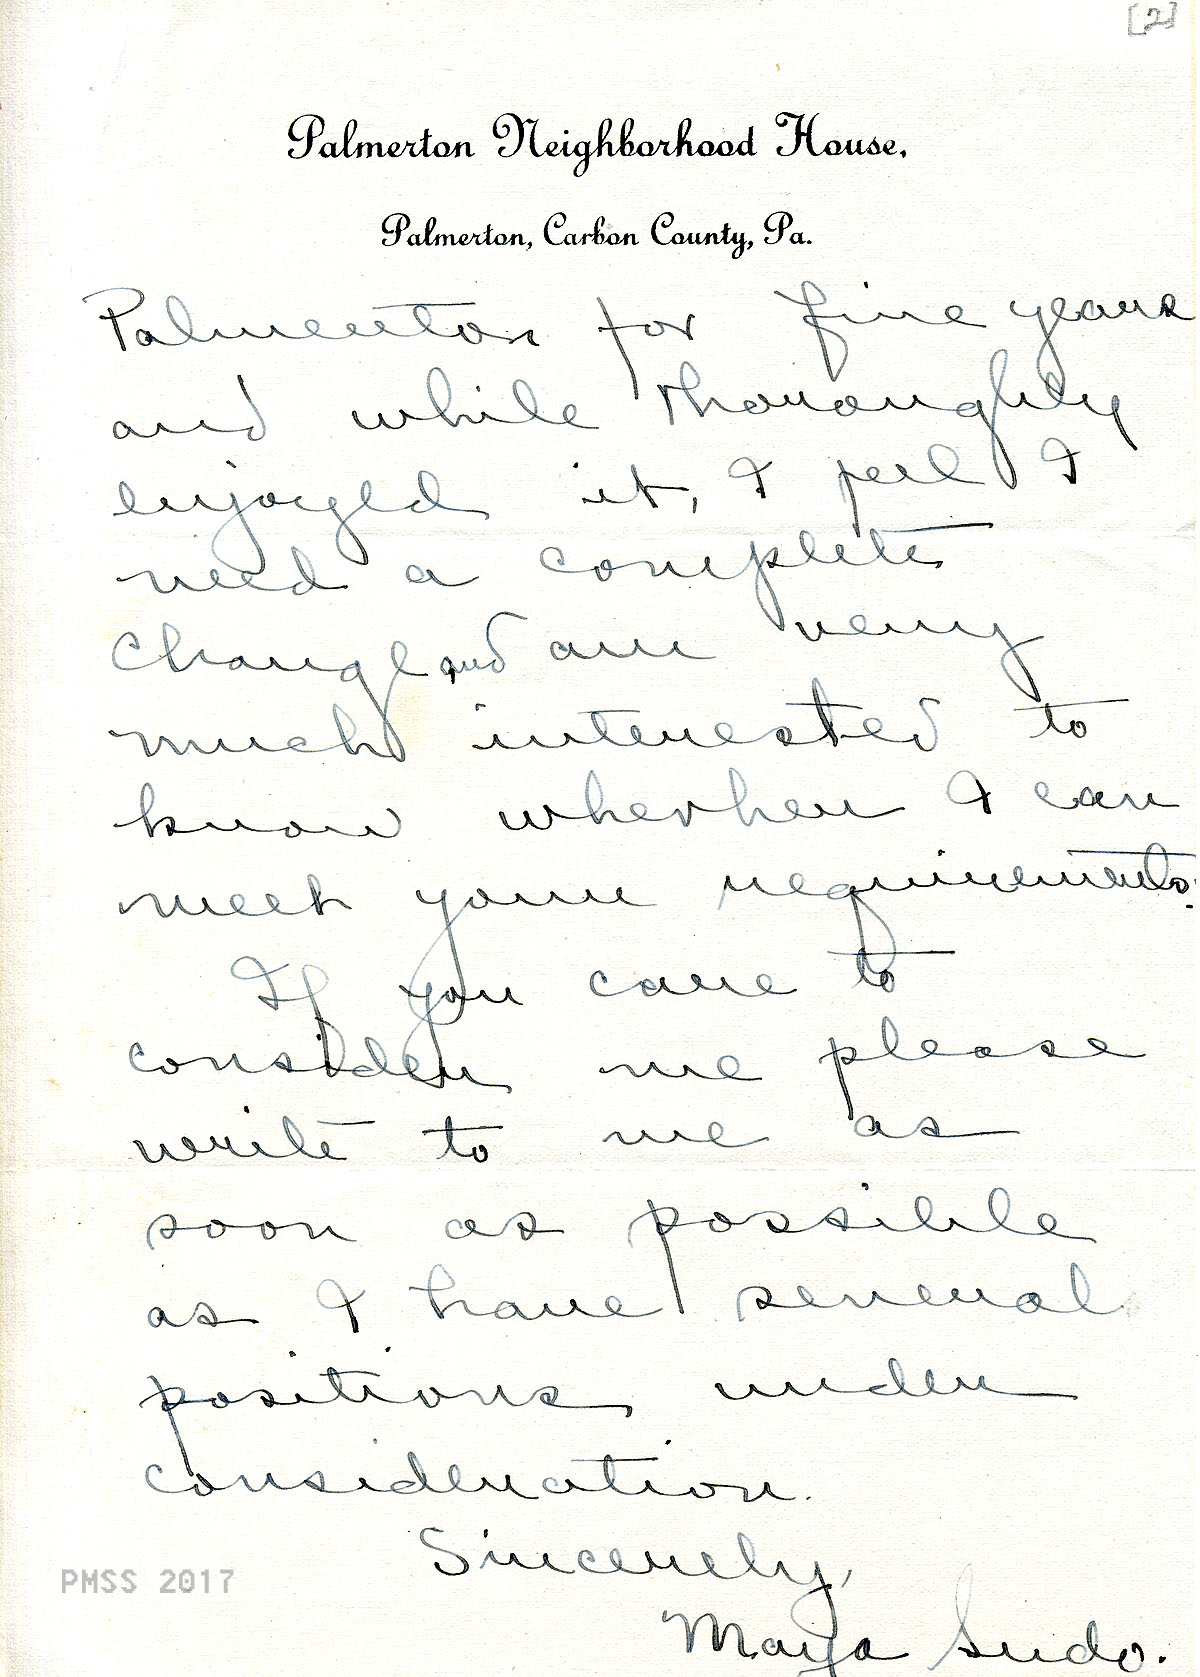 [2]
Palmerton Neighborhood House,
Palmerton, Carbon County, Pa.
Palmerton for five years
and while thoroughly
enjoyed it, I feel I
need a complete
change and am very
much interested to
know whether I can
meet your requirements.
If you care to
consider me please
write to me as
soon as possible
as I have several
positions under
consideration.
Sincerely,
Maya Sudo.
PMSS 2017